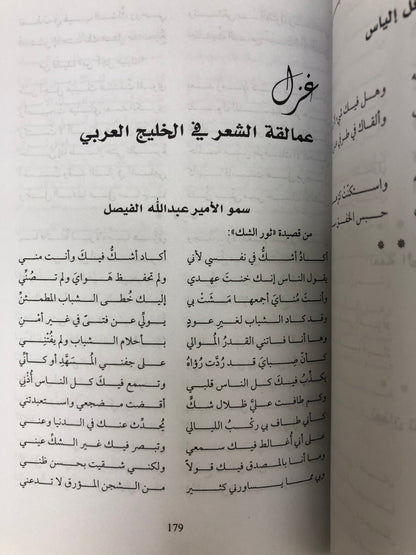 غزل
عمالقة الشعر في الخليج العربي
سمو الأمير عبدالله الفيصل
من قصيدة «ثور الشك»:
أكادُ أشكُّ في نفسي لأني أكاد أشكُّ فيكَ وأنت مني
يقول الناس إنك خنت عهدي ولم تحفظ هوايَ ولم تصُنِّي
وأنت مُنايَ أجمعها مَشَت بي إليك خُطى الشباب المطمئنِّ
وقد كاد الشباب لغير عودٍ يولِّي عن فتىً في غير أمْنِ
وها أنا فاتني القدرُ المُوالي بأحلام الشباب ولم يفُتْنِي
كأنّ صِبايَ قد رُدَّت رُؤاهُ على جفني المُسَهَّدِ أو كأنِّي
يكذِّبُ فيك كل الناس قلبي وتسمع فيك كل الناس أُذْني
وكم طافت عليَّ ظلال شكٍّ أقضت مضجعي واستعبدتني
كأني طاف بي ركبُ الليالي يُحدِّث عنك في الدنيا وعني
على أني أُغالط فيك سمعي وتبصر فيك غير الشكِّ عيني
وما أنا بالمصدق فيك قولاً ولكني شقيت بحسن ظني
وبي مما يساورني كثير من الشجن المؤرق لا تدعني
179
إلياس
وهل فيك
وألقاك في
واستكنت
حبس
* *